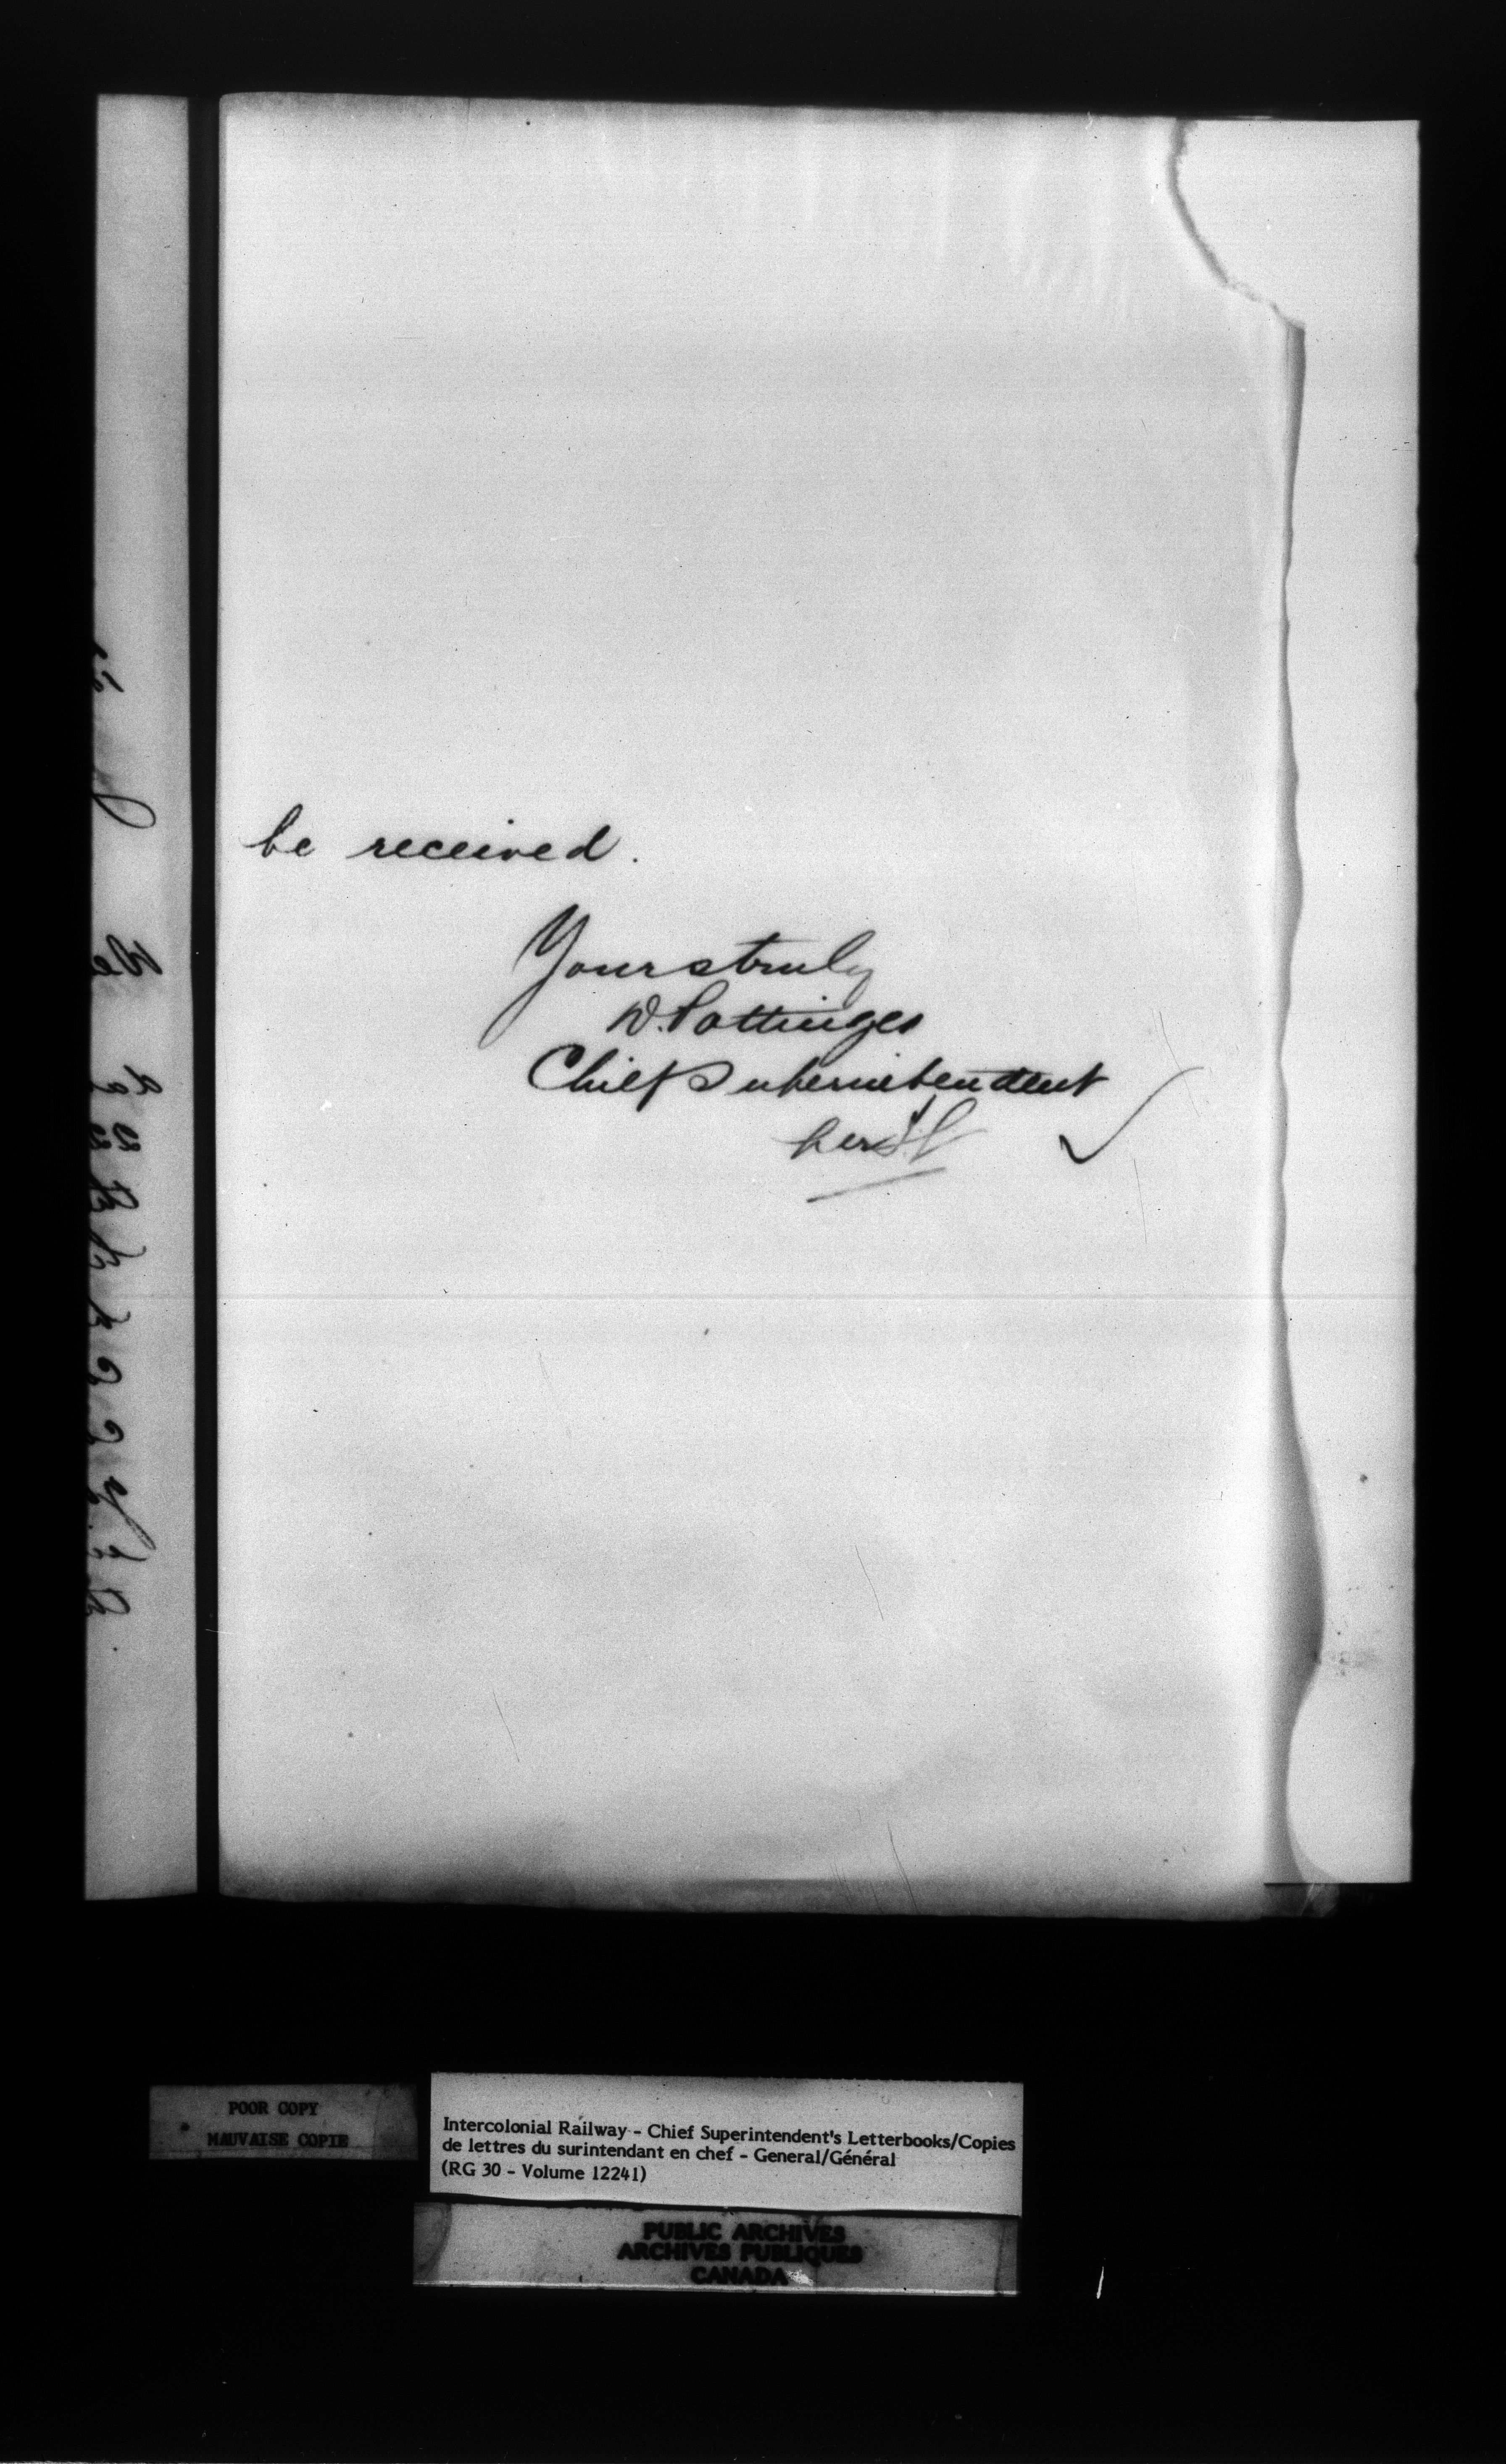 be received.
Yours truly
D. Pottinger
Chief Superintendent
per
POOR COPY
MAUVAISE COPIE
Intercolonial Railway - Chief Superintendent's Letterbooks/Copies
de lettres du surintendant en chef - General/Général
(RG 30 - Volume 12241)
PUBLIC ARCHIVES
ARCHIVES PUBLIQUES
CANADA